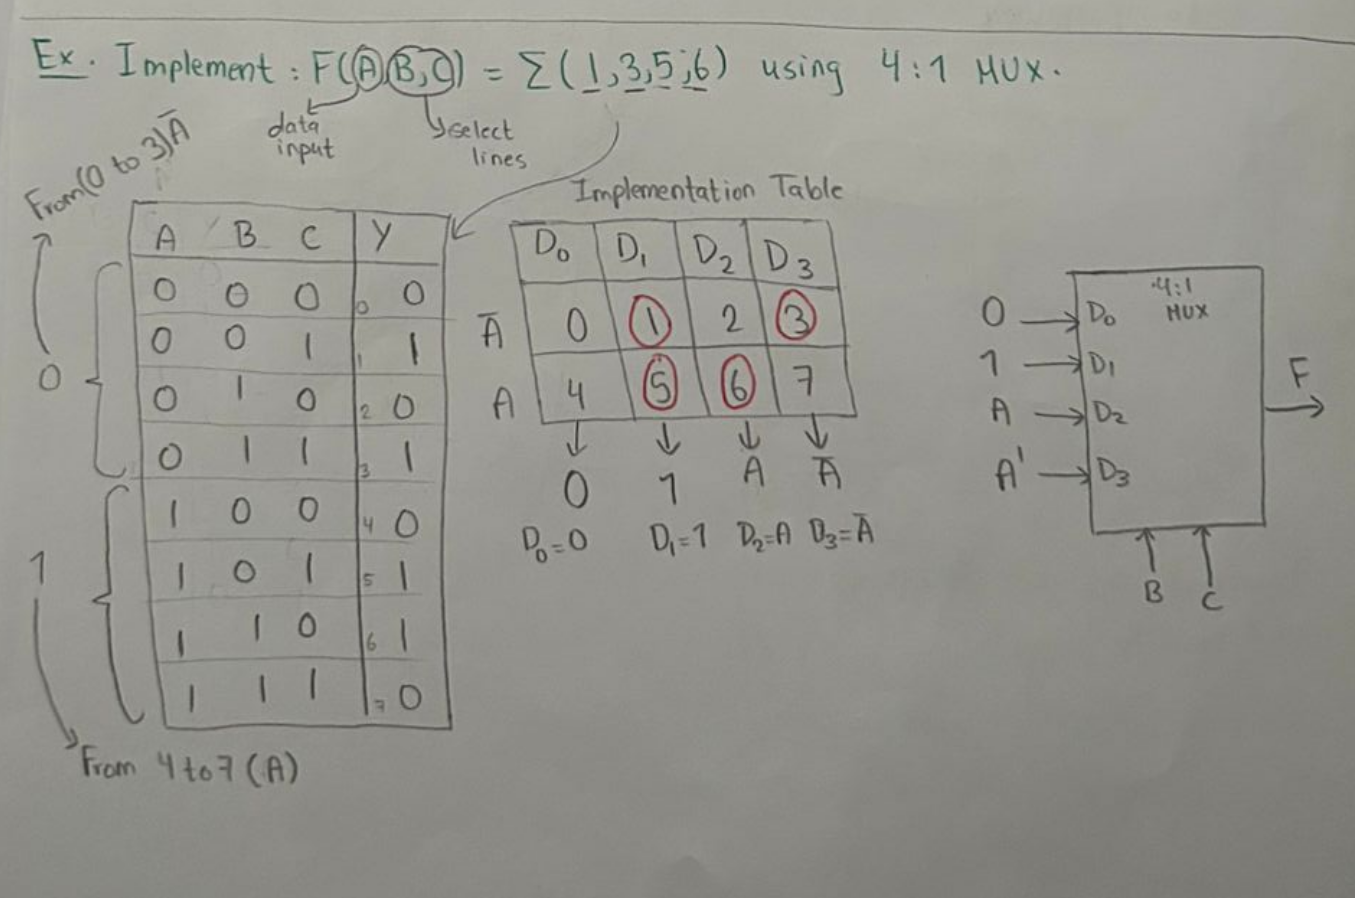 Ex. Implement : F(A,B,C) = Σ(1,3,5,6) using 4:1 MUX.
data input
select lines
From(0 to 3)A̅
0
1
From 4 to 7 (A)
A B C Y
0 0 0 0 0
0 0 1 1 1
0 1 0 2 0
0 1 1 3 1
1 0 0 4 0
1 0 1 5 1
1 1 0 6 1
1 1 1 7 0
Implementation Table
D₀ D₁ D₂ D₃
A̅ 0 1 2 3
A 4 5 6 7
0 1 A A̅
D₀=0 D₁=1 D₂=A D₃=A̅
4:1
MUX
0 D₀
1 D₁
A D₂
A' D₃
F
B C